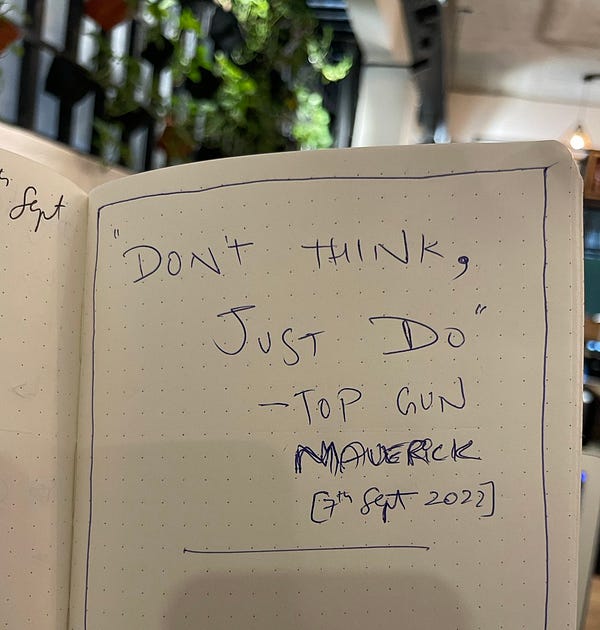 th
Sept
"DON'T THINK,
JUST DO"
- TOP GUN
MAVERICK
[7th Sept 2022]